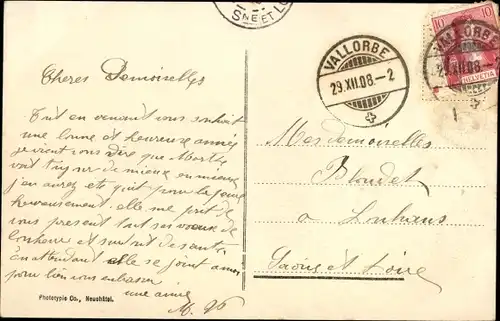 SNE ET LO
VALLORBE
29.XII.08.-2
10
10
VALLORBE
29.XII.08.
HELVETIA
Chères Demoiselles
Tout en venant vous souhait
une bonne et heureuse année
je viens vous dire que Marthe
vait tujour de mieux en mieux
j'en aurez été quit pour la peur
heureusement. elle me prit de
vous present tout ses vœux de
bonheur et surtout de santé
en attendant elle se joint a moi
pour bien vous embrasser
une amie
M.
Mesdemoiselles
Blondet
a Louhans
Saône et Loire
Phototypie Co., Neuchâtel.